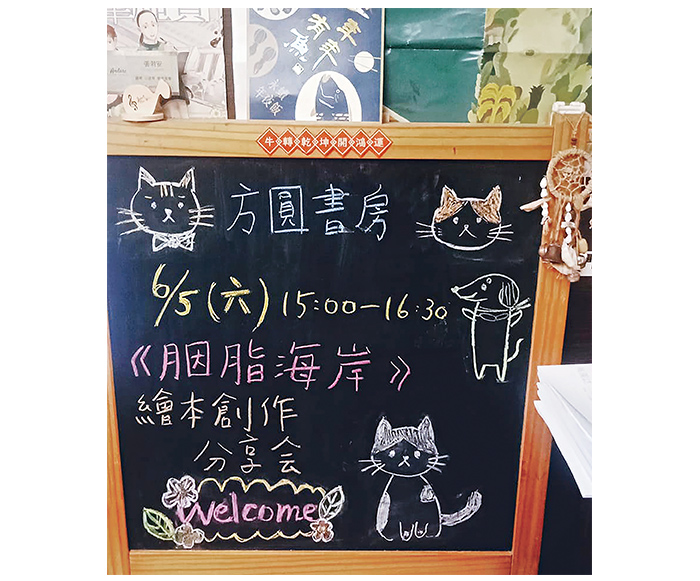 年年
有魚
水餃
年夜飯
牛轉乾坤開鴻運
方圓書房
6/5(六) 15:00－16:30
《胭脂海岸》
繪本創作
分享会
Welcome